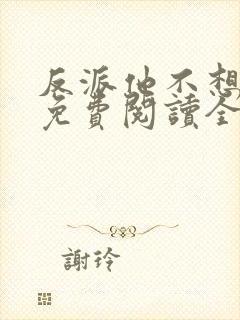 反派他不想
免費閱讀全
謝玲